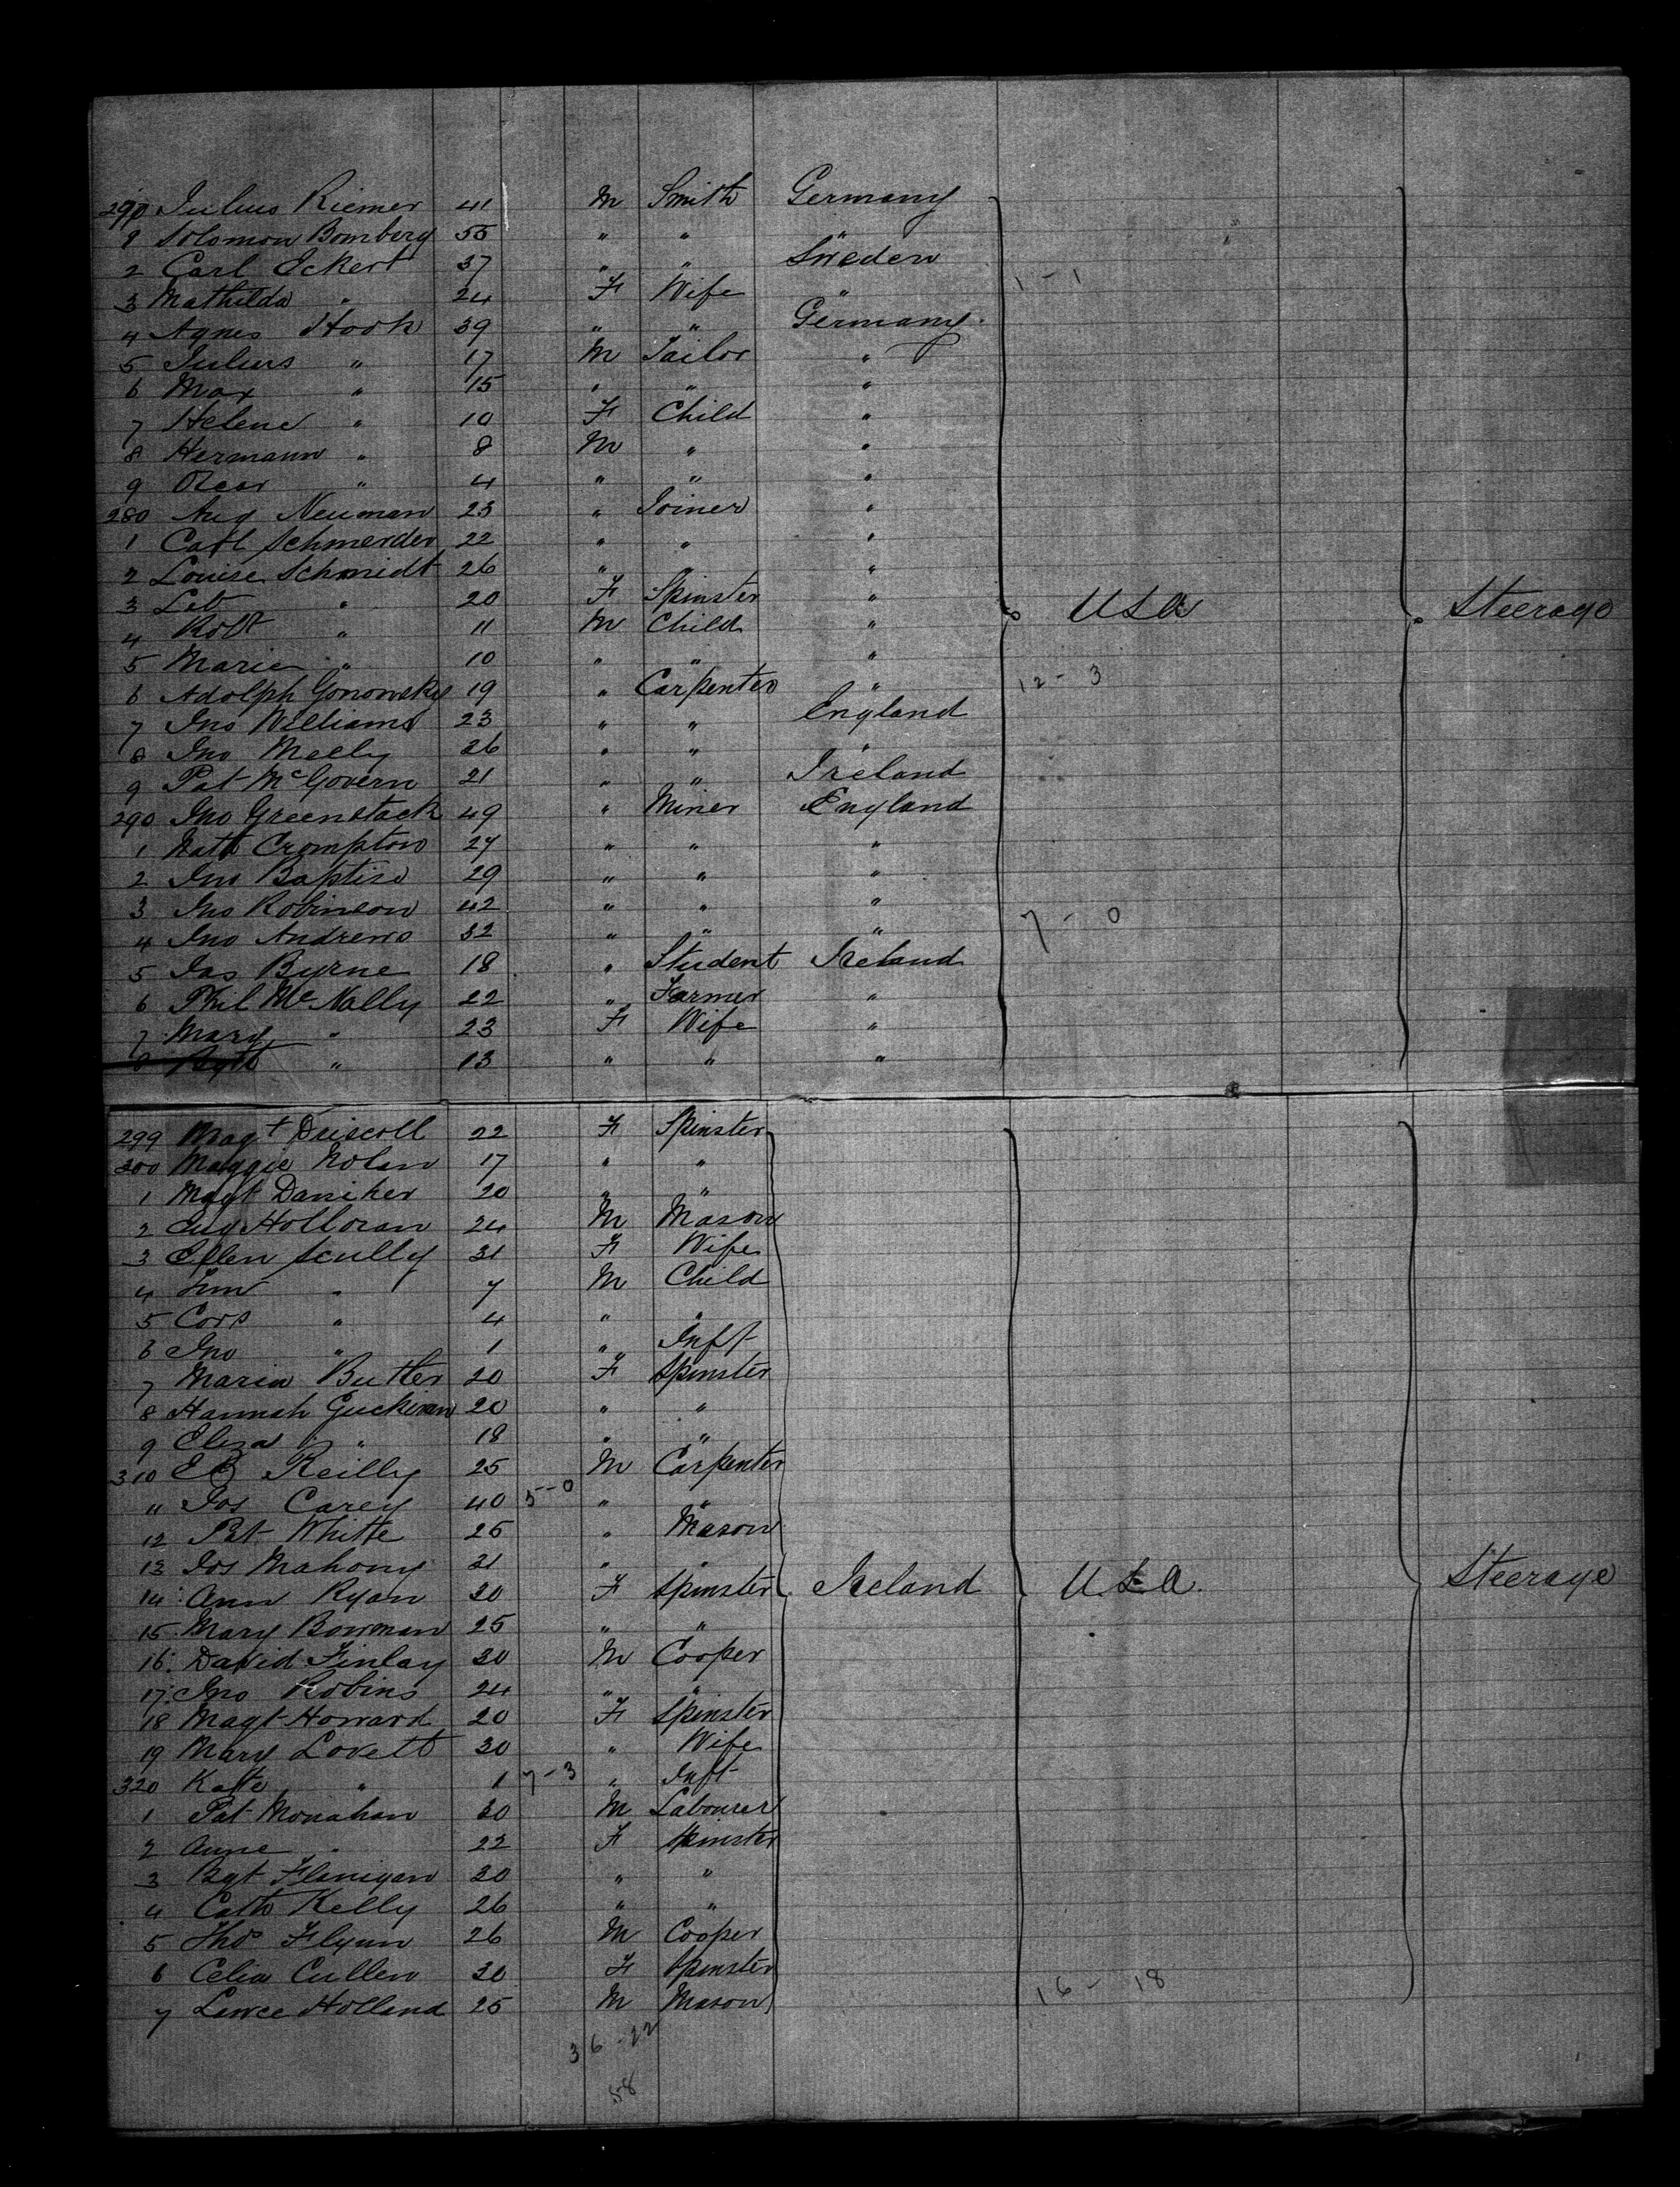 270 Julius Riemer 41 M Smith Germany
9 Solomon Bomberg 55 " " "
2 Carl Eckert 37 " " Sweden
1 - 1
3 Mathilda " 24 F Wife "
4 Agnes Hook 39 " " Germany
5 Julius " 17 M Tailor "
6 Max " 15 " " "
7 Helene " 10 F Child "
8 Hermann " 8 M " "
9 Oscar " 4 " " "
280 Aug Neuman 23 " Joiner "
1 Carl Schmerder 22 " " "
2 Louise Schmidt 26 " " "
3 " 20 F Spinster " USA Steerage
4 Robt " 11 M Child "
5 Marie " 10 " " "
6 Adolph Gonowsky 19 " Carpenter " 12 - 3
7 Jno Williams 23 " " England
8 Jno Melly 26 " " "
9 Pat McGovern 21 " " Ireland
290 Jno Greenstack 49 " Miner England
1 Matt Crompton 27 " " "
2 Jno Baptise 29 " " "
3 Jno Robinson 42 " " "
7 - 0
4 Jno Andrews 32 " " "
5 Jas Byrne 18 " Student Ireland
6 Phil McNally 22 " Farmer "
7 Mary " 23 F Wife "
8 Bgt " 13 " " "
299 Magt Driscoll 22 F Spinster
300 Maggie Nolan 17 " "
1 Magt Daniher 20 " "
2 Eug Holloran 24 M Mason
3 Ellen Scully 31 F Wife
4 Tim " 7 M Child
5 Cors " 4 " "
6 Jno " 1 " Inft
7 Maria Butler 20 F Spinster
8 Hannah Guckiran 20 " "
9 Eliza " 18 " "
310 Reilly 25 M Carpenter
" Jos Carey 40 5-0 " "
12 Pat White 25 " Mason
13 Jos Mahony 21 " "
14 Ann Ryan 20 F Spinster Ireland USA. Steerage
15 Mary Bowman 25 " "
16 David Finlay 20 M Cooper
17 Jno Robins 24 " "
18 Magt Howard 20 F Spinster
19 Mary Lovett 30 " Wife
320 Kate " 1 7-3 " Inft
1 Pat Monahan 20 M Labourer
2 Anne " 22 F Spinster
3 Bgt Flanigan 20 " "
4 Cath Kelly 26 " "
5 Thos Flynn 26 M Cooper
6 Celia Cullen 20 F Spinster
16 - 18
7 Lawce Holland 25 M Mason
36 - 22
58